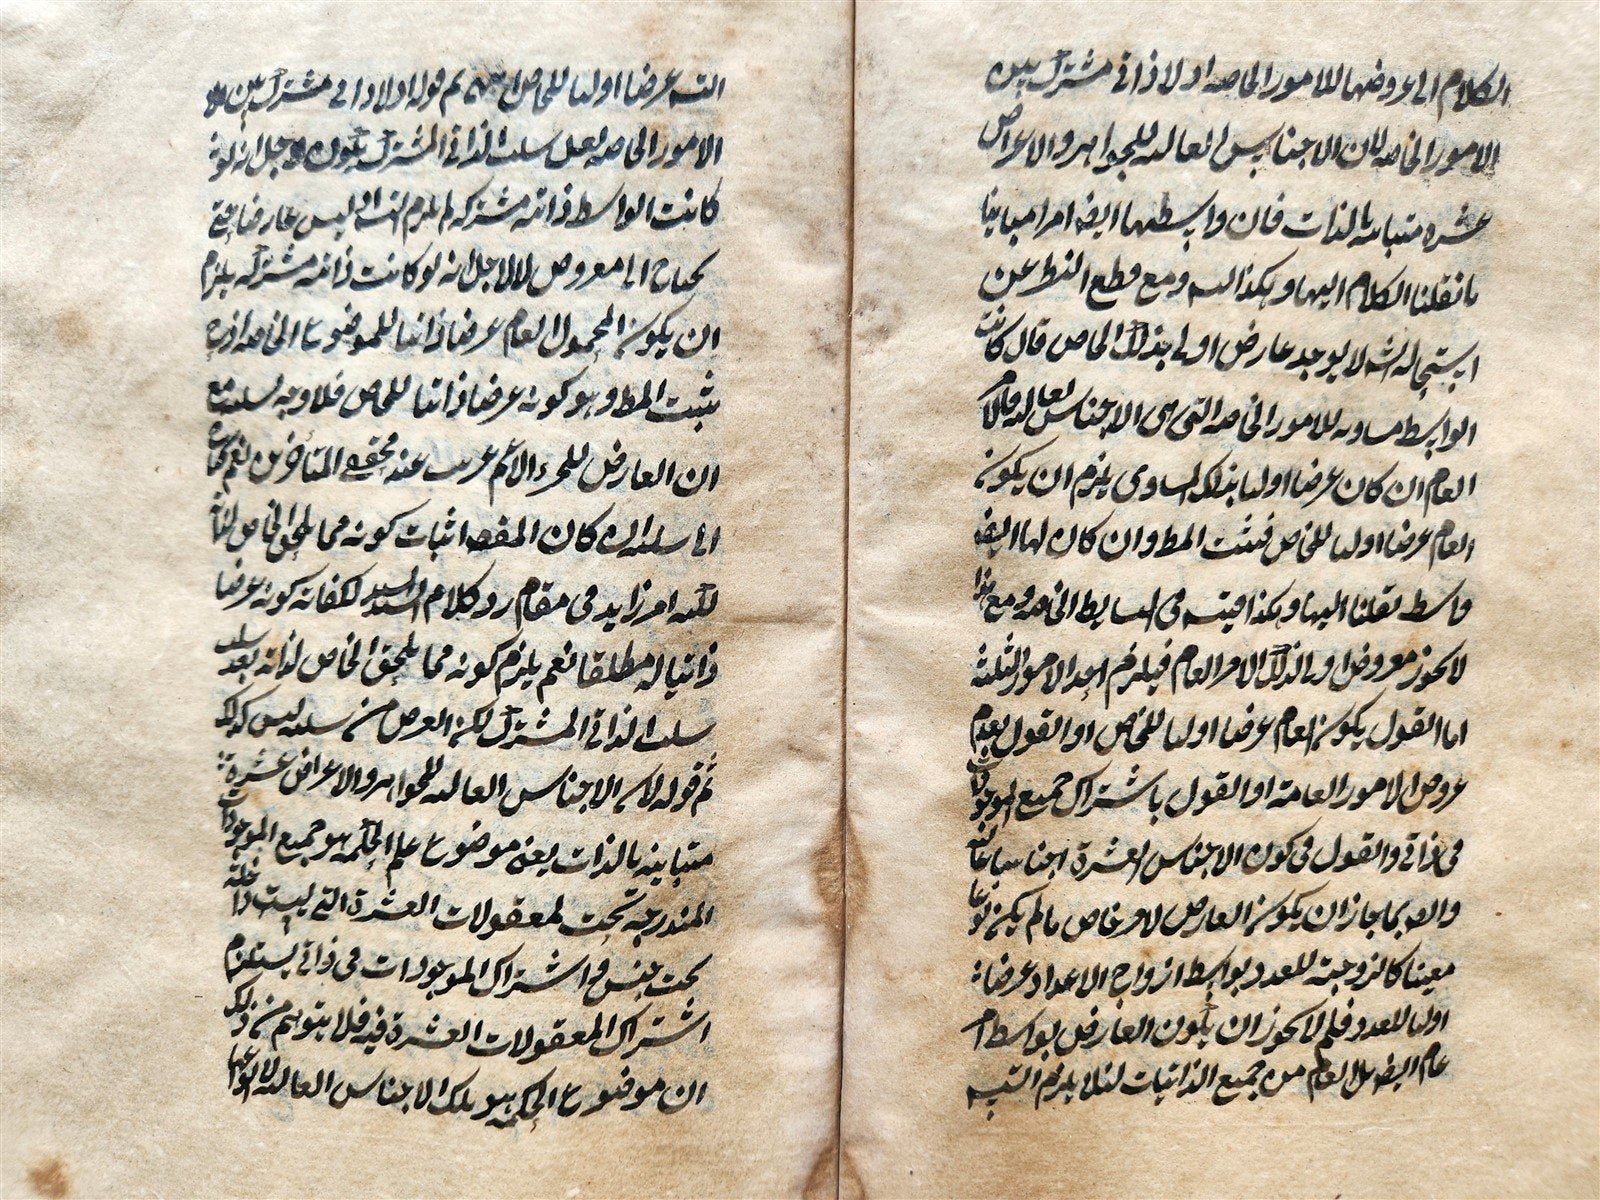 الكلام الى عروضها للامور الخاصة اولا ذاتي مشترك بين
الامور الخاصة لان الاجناس العالية للجواهر والاعراض
عشرة متباينة بالذات فان واسطتها ايضا امرا مباينا
ما نقلنا الكلام اليها وهكذا ومع قطع النظر عن
استحالة لا يوجد عارض اولي بذلك الخاص قال كانت
الواسطة مساوية للامور الخاصة التي هي الاجناس العالية فالامر
العام ان كان عرضا اوليا بذلك المساوي يلزم ان يكون
العام عرضا اوليا للخاص فيثبت المط وان كان لها ايضا
واسطة نقلنا اليها وهكذا فيتسه في الوسايط الخاصة ومع هذا
لا يجوز معروض اولي لذلك الامر العام فيلزم احد الامور الثلثة
اما القول بكون العام عرضا اوليا للخاص او القول بعدم
عروض الامور العامة او القول باشتراك جميع الموجودات
في ذاتي والقول في كون الاجناس العشرة اجناسا عالية
وايضا كما جاز ان يكون العارض لامر خاص ما لم يكن نوعا
معينا كالزوجية للعدد بواسطة ازواج الاعداد عرضا
اوليا للعدد فلم لا يجوز ان يكون العارض بواسطة امر
عام ايضا من جميع الذاتيات لئلا يلزم التسه
عرضا اوليا للخاص ثم قوله اولا ذاتي مشترك بين
الامور الخاصة لعل سلب الذاتي المشترك يكون لاجل انه لو
كانت الواسطة ذاتية مشتركة لم يلزم التسه اذ ليس عارضا حتى
يحتاج الى معروض لا لاجل انه لو كانت ذاتية مشتركة يلزم
ان يكون المحمول العام عرضا ذاتيا للموضوع الخاص اذ ح
يثبت المط وهو كونه عرضا ذاتيا للخاص فلا وجه لسلبه مع
ان العارض للجزء الاعم غريب عند محققي المتأخرين نعم يحتاج
الى سلبه لو كان المقصد اثبات كونه مما يلحق الخاص لذاته
لكنه امر زايد في مقام رد كلام السيد لكفاية كونه عرضا
ذاتيا له مطلقا نعم يلزم كونه مما يلحق الخاص لذاته بعد سلب
سلب الذاتي المشترك لكن الغرض من سلبه ليس كذلك
ثم قوله لان الاجناس العالية للجواهر والاعراض عشرة
متباينة بالذات يعني موضوع علم الحكمة هو جميع الموجودات
المندرجة تحت المعقولات العشرة التي ليست داخلة
تحت جنس فاشتراك الموجودات في ذاتي يستلزم
اشتراك المعقولات العشرة فيه فلا يتوهم من ذلك
ان موضوع الحكمة هو تلك الاجناس العالية لا انواعها